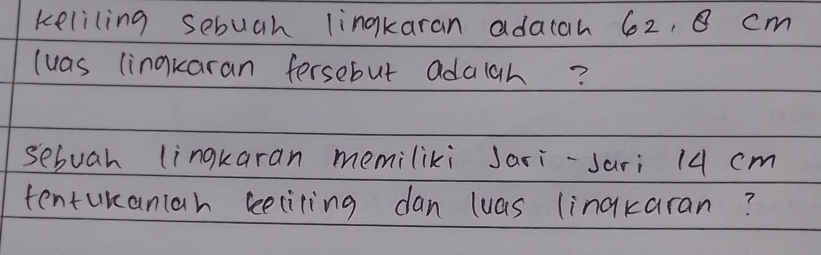 keliling sebuah lingkaran adalah 62,8 cm
luas lingkaran tersebut adalah ?
sebuah lingkaran memiliki Jari-Jari 14 cm
tentukanlah keliling dan luas lingkaran ?